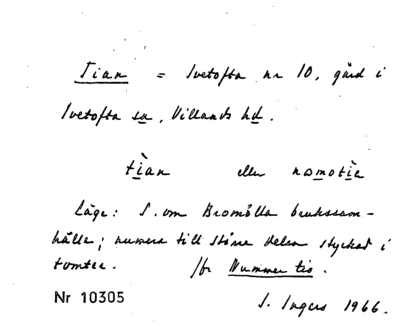 Tian = Ivetofta nr 10, gård i
Ivetofta sn, Villands hd.
tìan eller nomotìe
Läge: S. om Bromölla brukssam-
hälle; numera till större delen styckad i
tomter. Jfr Nummer tio.
Nr 10305
S. Ingers 1966.